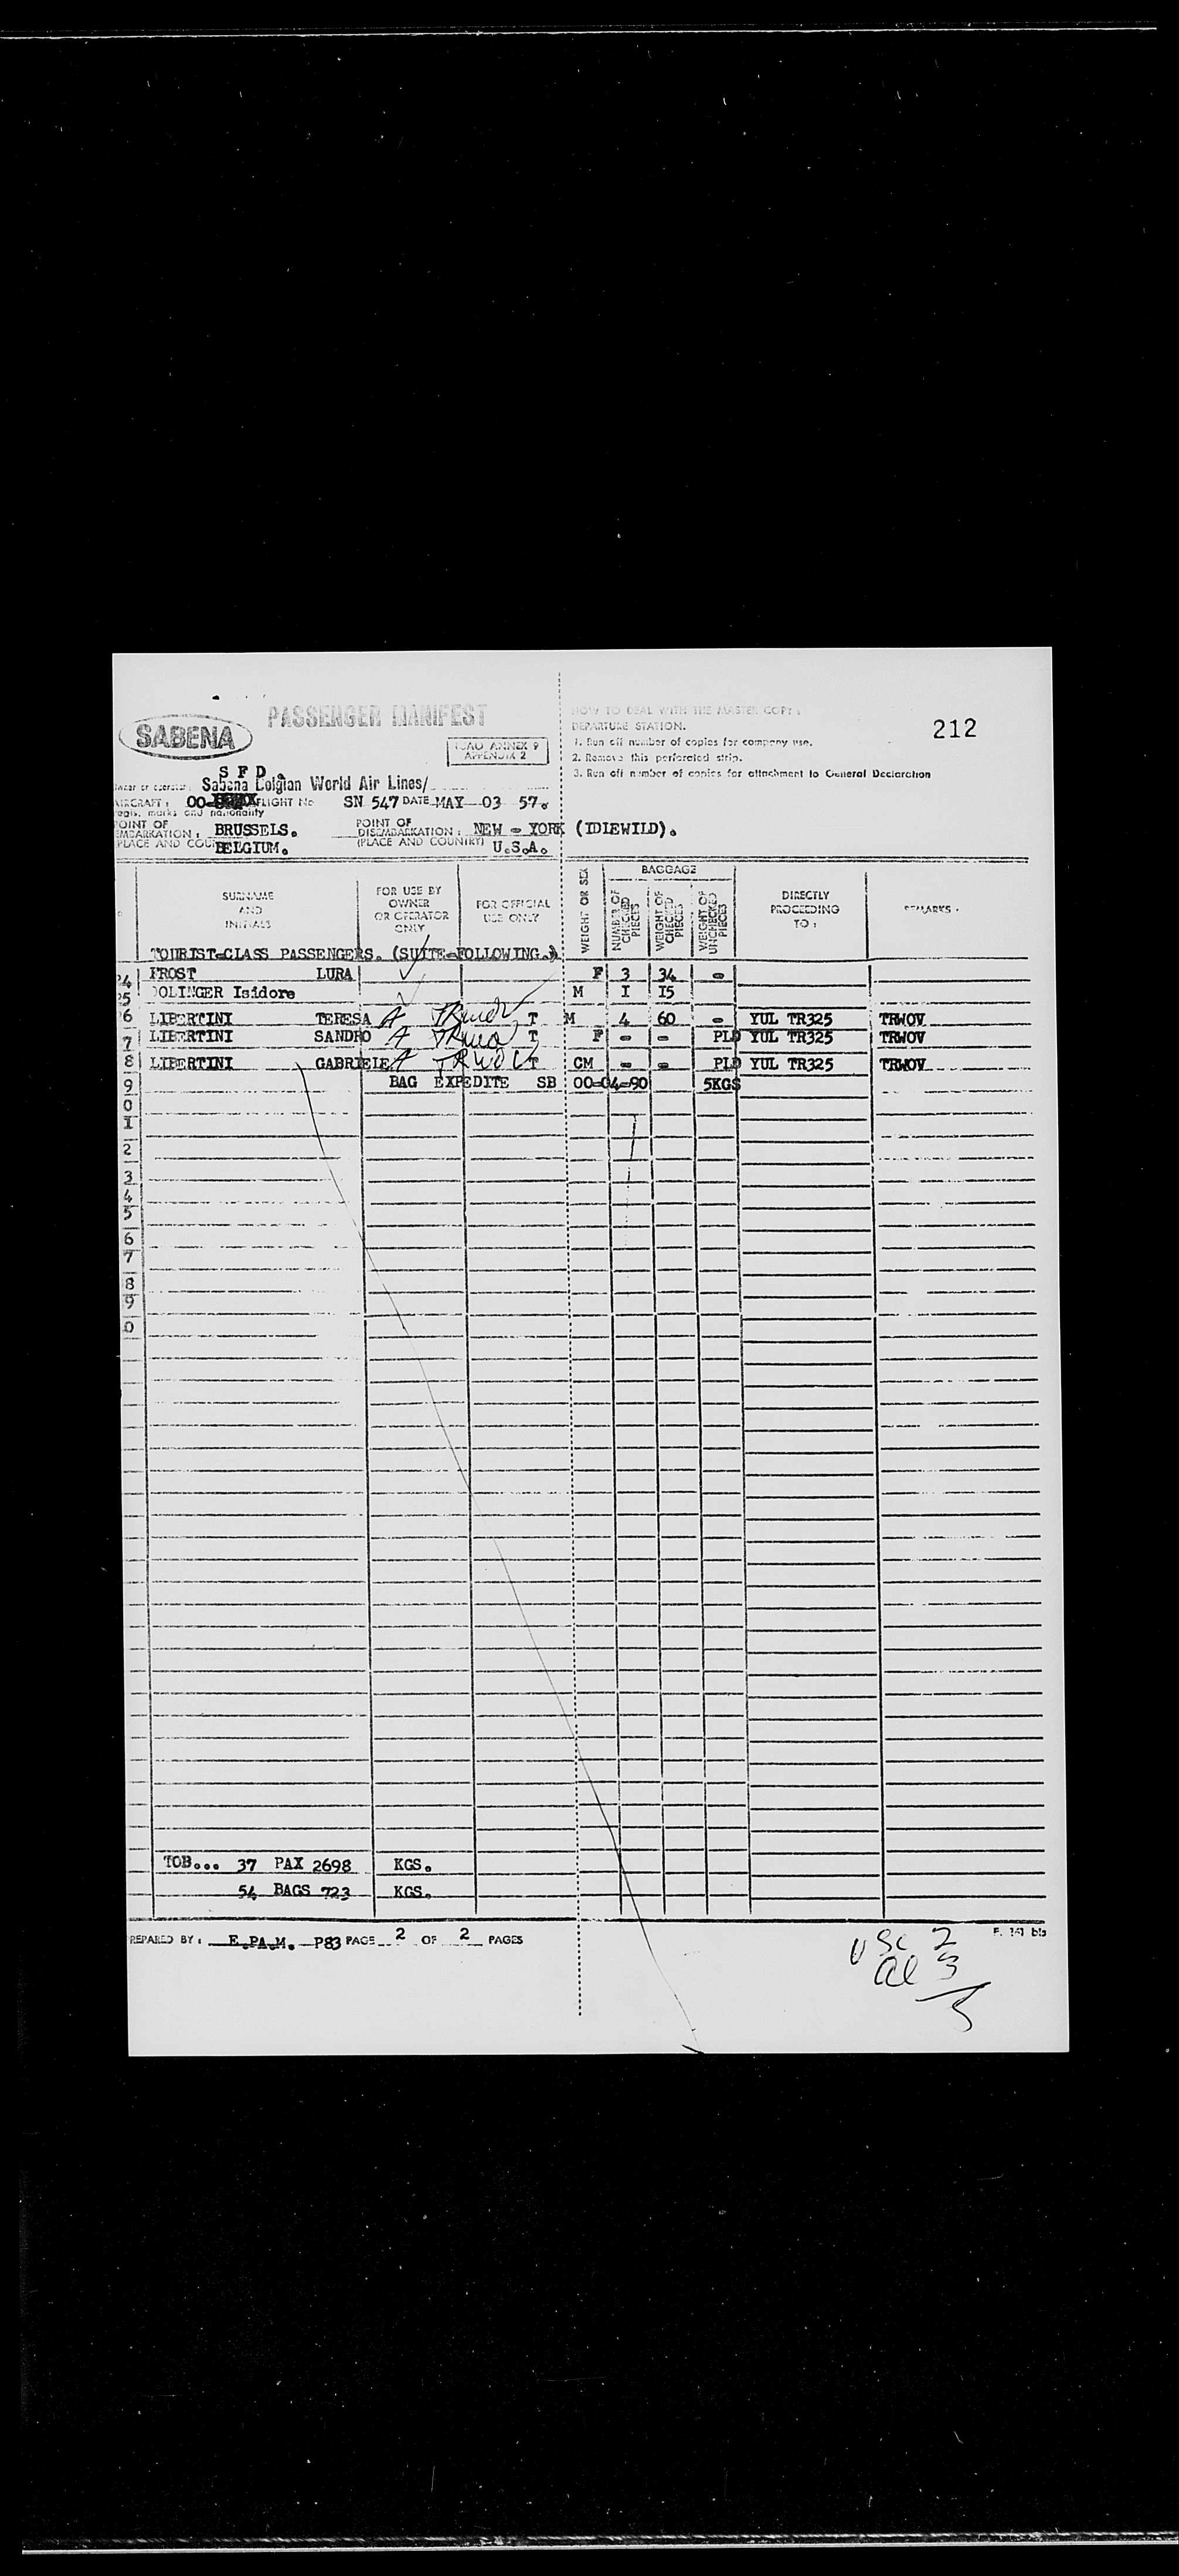 PASSENGER MANIFEST
SABENA
ICAO ANNEX 9
APPENDIX 2
HOW TO DEAL WITH THE MASTER COPY :
DEPARTURE STATION.
1. Run off number of copies for company use.
2. Remove this perforated strip.
3. Run off number of copies for attachment to General Declaration
212
S F D .
Owner or operator: Sabena Belgian World Air Lines/
AIRCRAFT : OO- FLIGHT No SN 547 DATE MAY 03 57.
regis. marks and nationality
POINT OF EMBARKATION : BRUSSELS.
POINT OF DISEMBARKATION : NEW - YORK (IDLEWILD).
(PLACE AND COUNTRY) BELGIUM.
(PLACE AND COUNTRY) U.S.A.
SURNAME AND INITIALS
FOR USE BY OWNER OR OPERATOR ONLY
FOR OFFICIAL USE ONLY
WEIGHT OR SEX
BAGGAGE
NUMBER OF CHECKED PIECES
WEIGHT OF CHECKED PIECES
WEIGHT OF UNCHECKED PIECES
DIRECTLY PROCEEDING TO :
REMARKS .
TOURIST-CLASS PASSENGERS. (SUITE-FOLLOWING.)
4 FROST LURA F 3 34 -
5 DOLINGER Isidore M I I5
6 LIBERTINI TERESA A TRWOV T M 4 60 - YUL TR325 TRWOV
7 LIBERTINI SANDRO A TRWOV T F - - PLD YUL TR325 TRWOV
8 LIBERTINI GABRIELE A TRWOV T CM - - PLD YUL TR325 TRWOV
9 BAG EXPEDITE SB 00-04-90 5KGS
0
1
2
3
4
5
6
7
8
9
0
TOB... 37 PAX 2698 KGS.
54 BAGS 723 KGS.
PREPARED BY : E.PA.M. P83 PAGE 2 OF 2 PAGES
F. 141 bis
USC 2
al 3
5